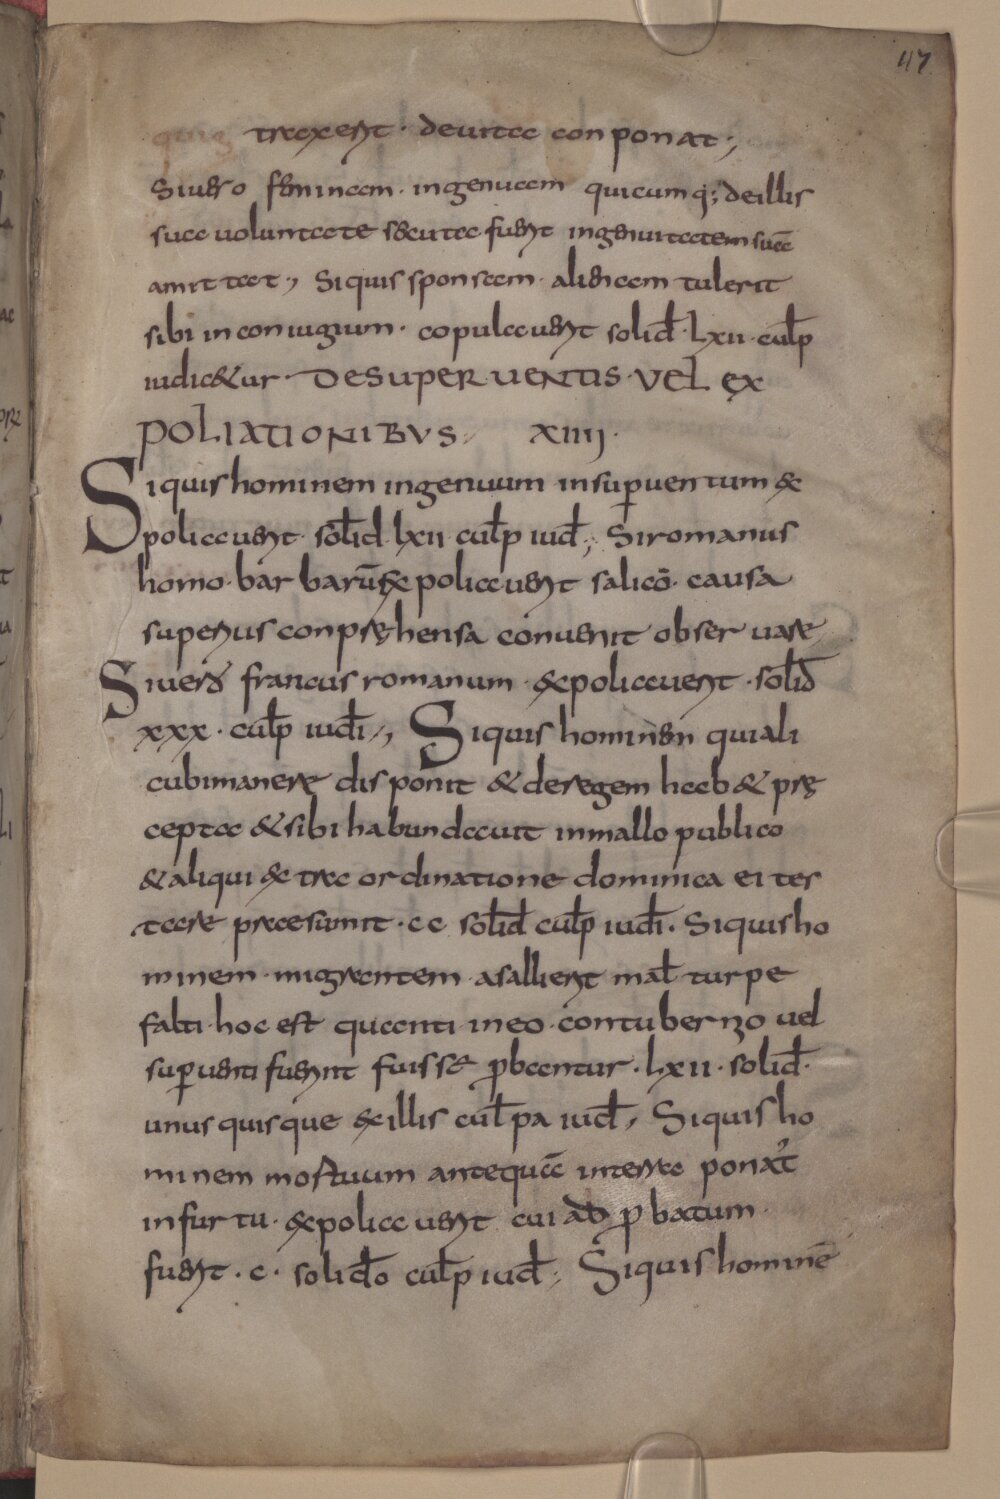 47
traxer̄t · deuitae conponat ;,
Siuero feminam · ingenuam quicumq; deillis
sua uoluntate secuta fuert ingenuitatem suā
amittat ·, Siquis sponsam · alienam tulerit
sibi in coniugium · copulauert solid̄ · Lxii · cul̄p
iudic&ur · DESUPERUENTIS · VEL EX
POLIATIONIBVS ·, XIIII ·
Siquis hominem ingenuum insup̱uentum ex
poliauert · sol̄id lxii cul̄p iud̄ ·, Siromanus
homo · bar barūexpoliauert salicō · causa
superius conpręhensa conuenit obseruare
Siuerō francus romanum · expoliauert · sol̄id
xxx · cul̄p iud̄i ·, Siquis hominen quiali
cubimanere disponit & deregem hab& prę
cepta & sibi habundauit inmallo publico
& aliqui extra ordinatione dominica ei tes
tare presumit · c c sol̄id cul̄p iud̄i · Siquis ho
minem · migrantem · asallient mal̄ turpe
falti · hoc est quanti in eo · contubernio uel
sup̱uenti fuerint fuisse p̱bantur · lxii · solid̄ ·
unusquisque exillis cul̄pa iud̄ , Siquis ho
minem mortuum antequā interra ponat̄
infurtu · expoliauert cui ad p̱batum ·
fuert · c · solid̄o cul̄p iud̄ ·, Siquis hominē